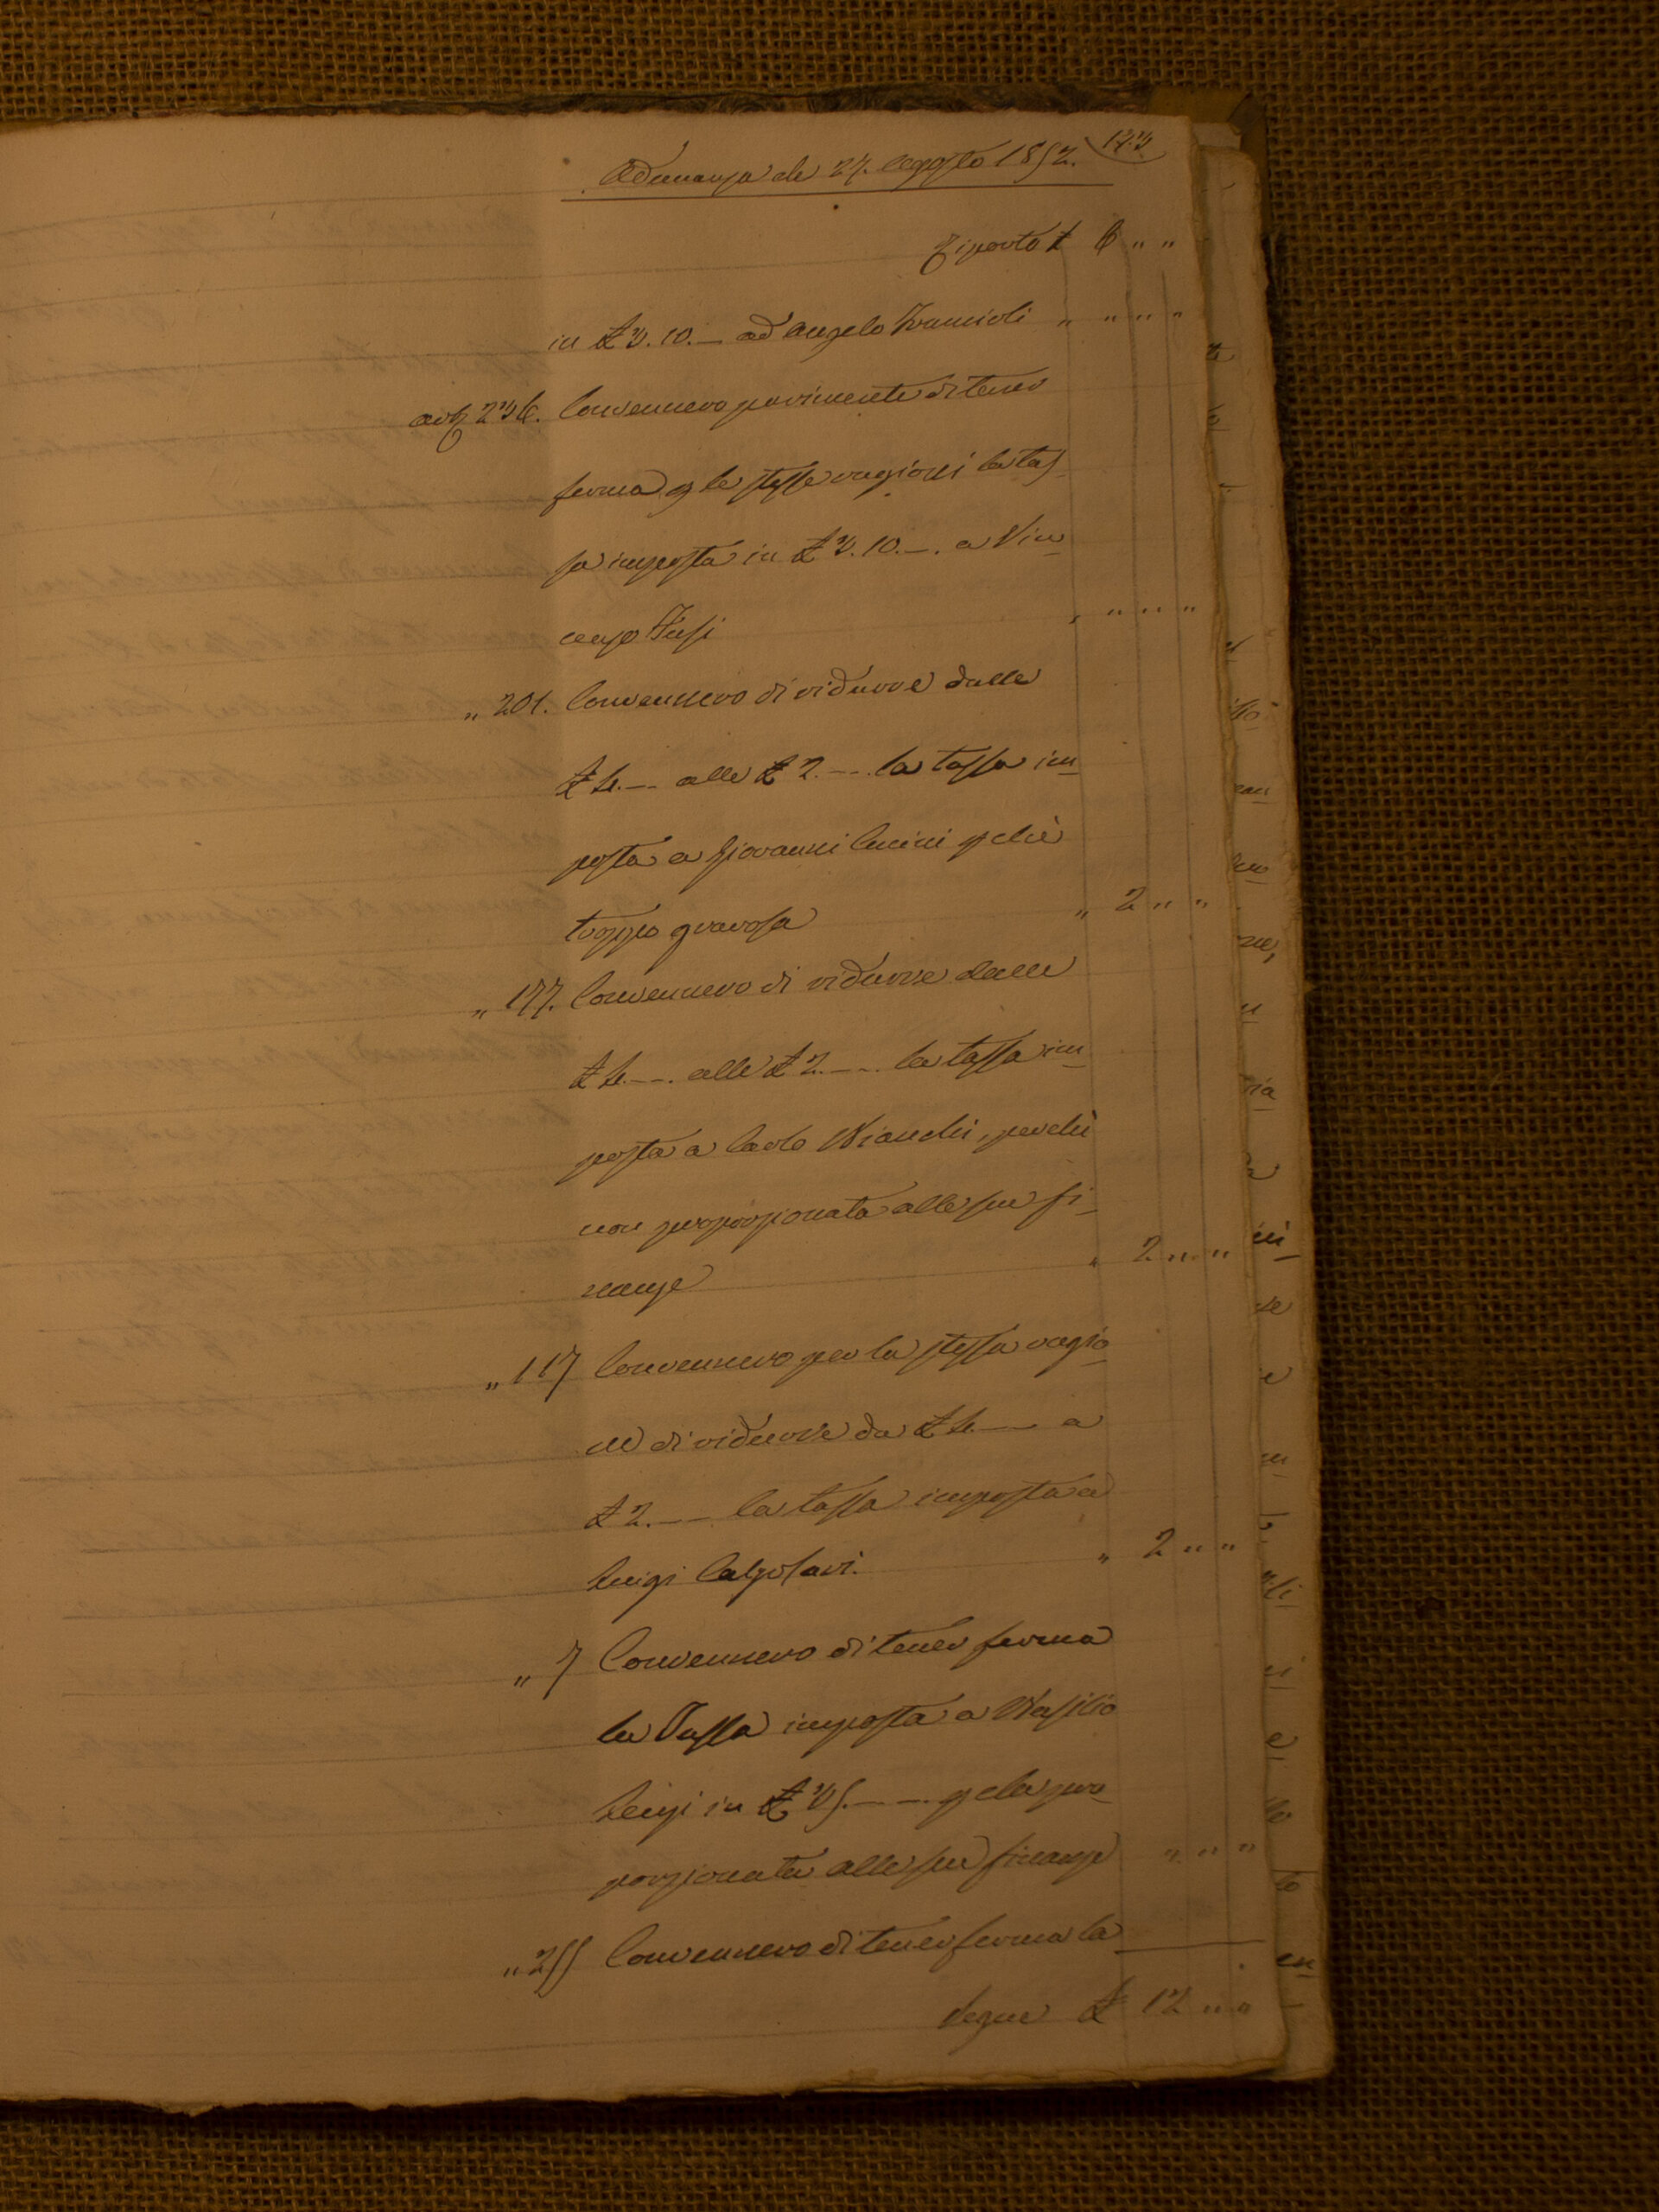 Adunanza de 27. Agosto 1852. 173
Riporto £ 6 " "
in £ 3. 10. — ad Angelo " " " "
art. 236. Convennero parimente di tener
ferma p le stesse ragioni la tas_
sa imposta in £ 3. 10. —. a Vin_
cenzo Fusi " " " "
" 201. Convennero di ridurre dalle
£ 4. — — alle £ 2. — —. la tassa im_
posta a Giovanni Cucini p chè
troppo gravosa " 2 " "
" 177. Convennero di ridurre dalle
£ 4. — —. alle £ 2. — —. la tassa im_
posta a Carlo Bianchi, perchè
non proporzionata alle sue fi_
nanze " 2 " "
" 117 Convennero per la stessa ragio_
ne di ridurre da £ 4. — — a
£ 2. — — la tassa imposta a
Luigi Calzolari. " 2 " "
" 7 Convennero di tener ferma
la Tassa imposta a Basilio
Luigi in £ 35. — —. p chè pro_
porzionata alle sue finanze " " "
" 255 Convennero di tener ferma la
Segue £ 12 " "